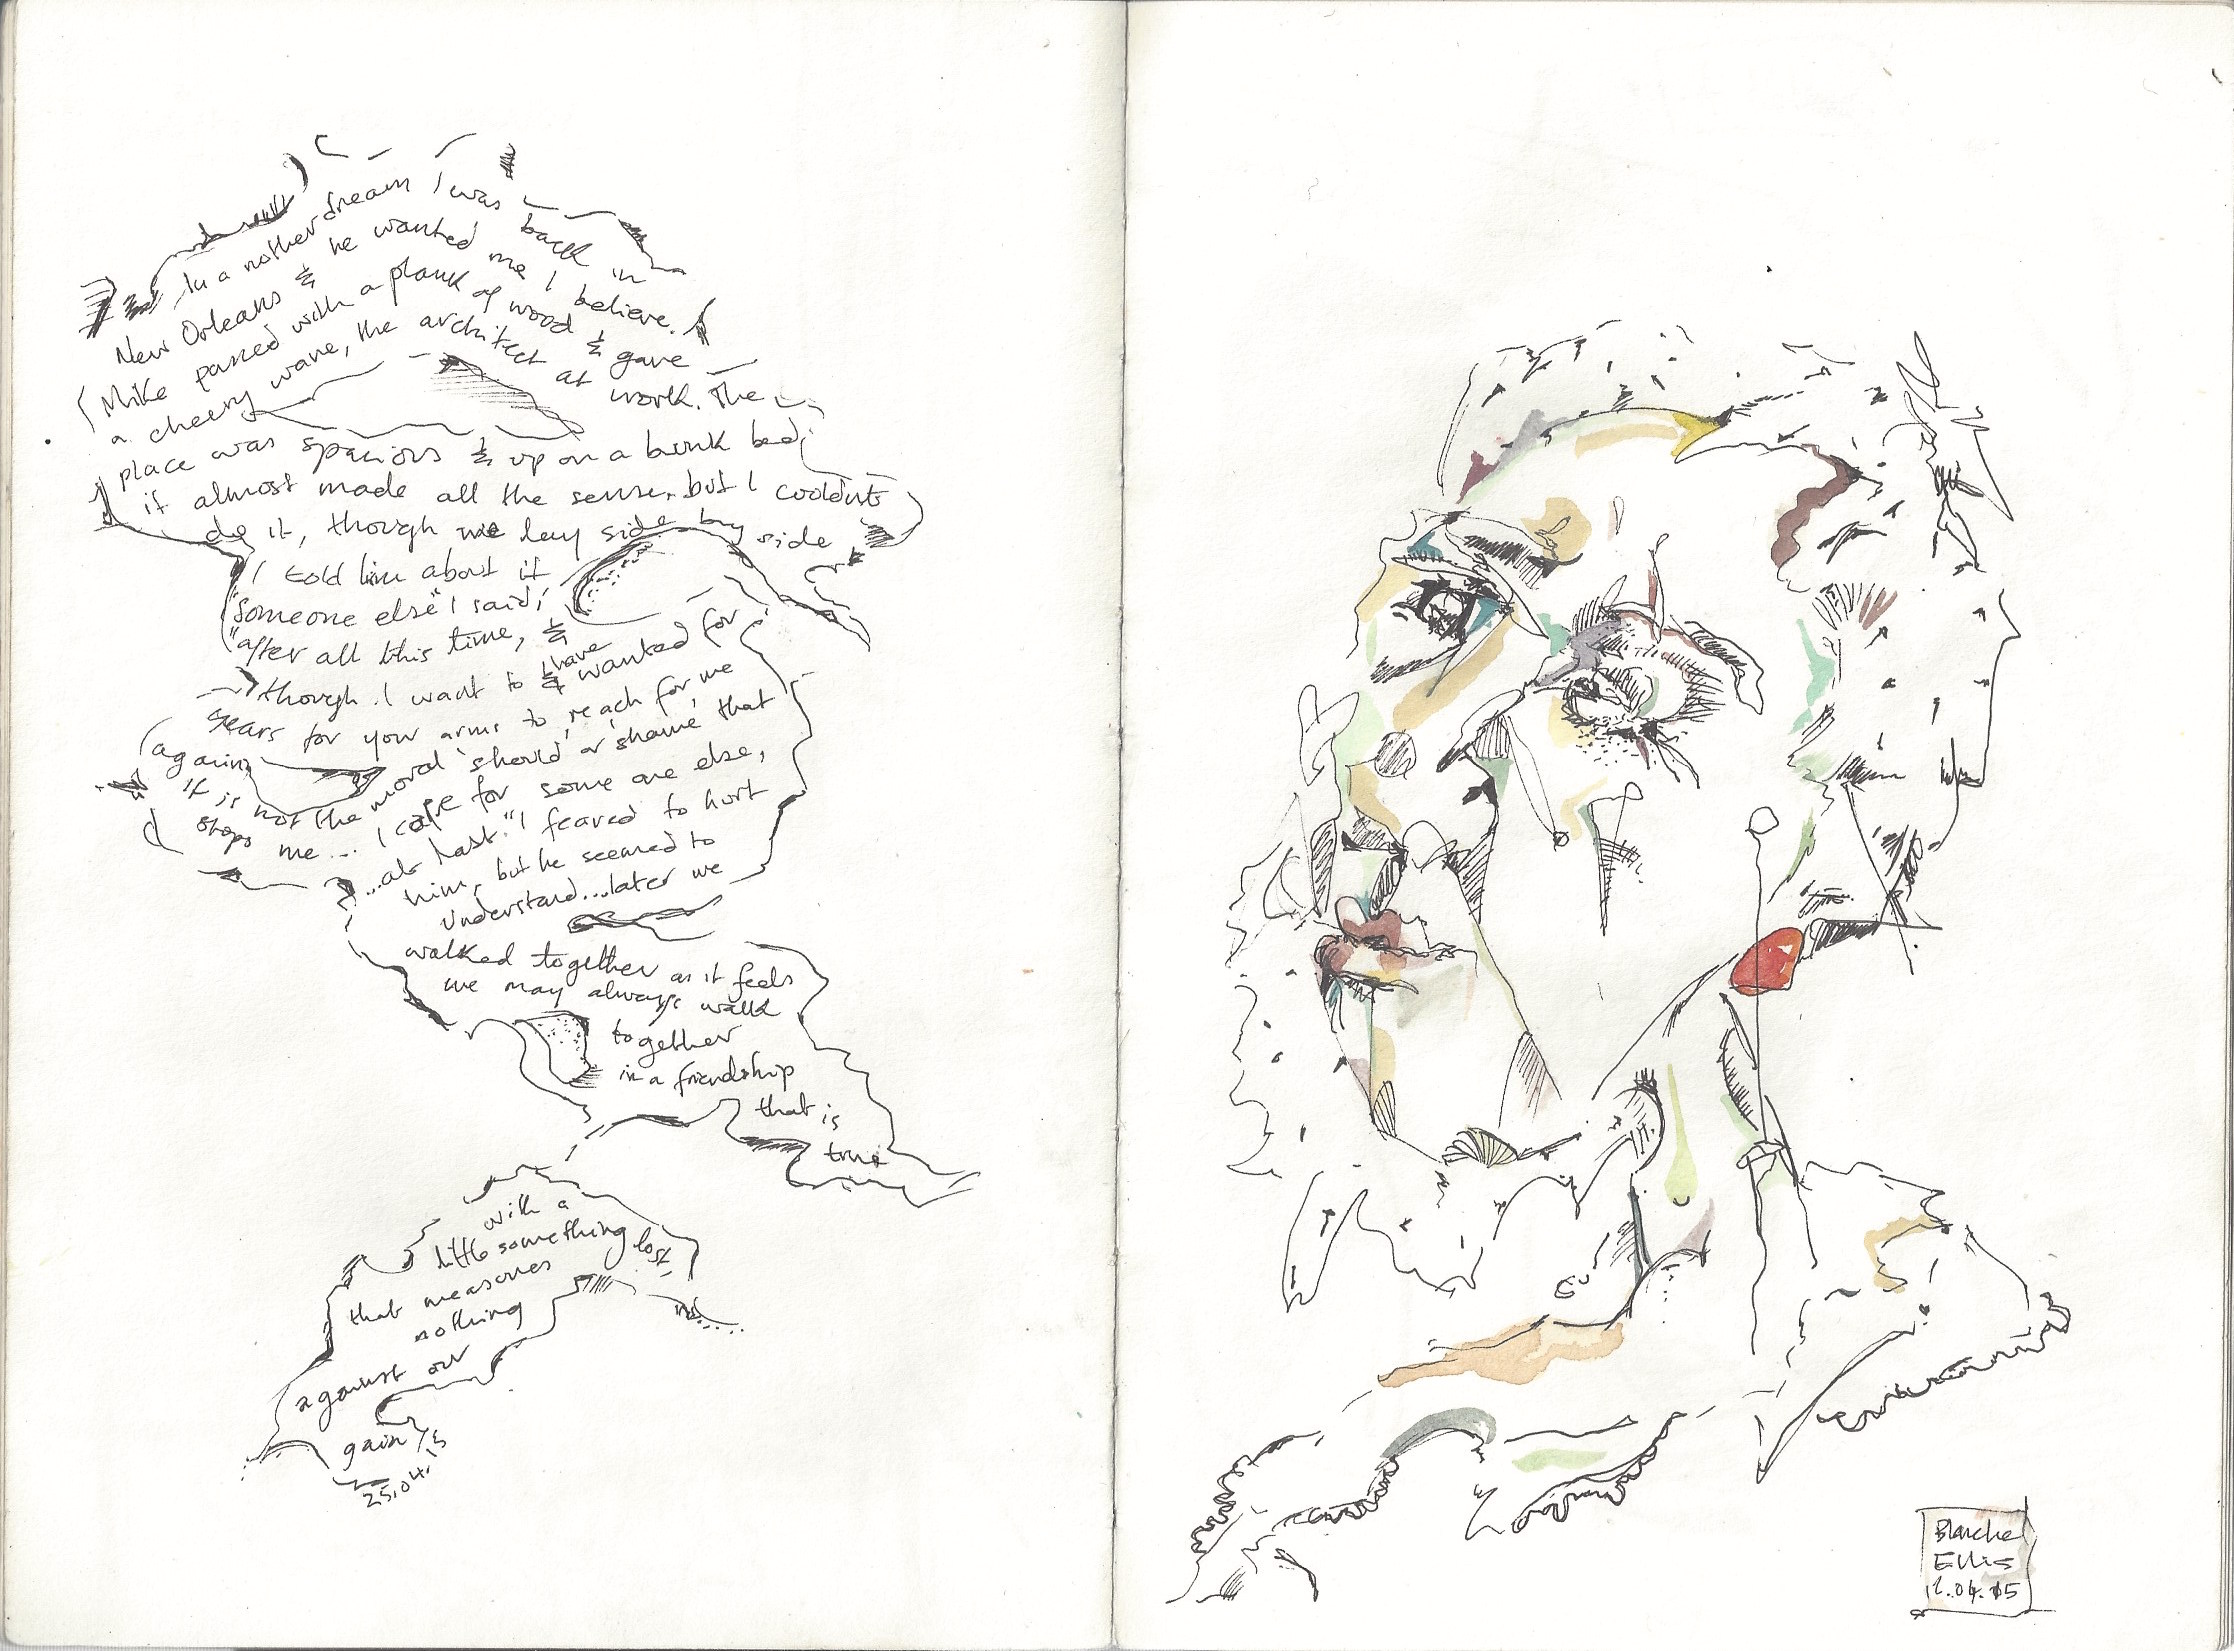 In a nother dream I was back in
New Orleans & he wanted me I believe.
Mike passed with a plank of wood & gave
a cheery wave, the architect at work. The
place was spacious & up on a bunk bed
it almost made all the sense, but I couldn't
do it, though we lay side by side
I told him about it
"Someone else" I said,
"after all this time, &
though I want to & have wanted for
years for your arms to reach for me
again,
it is not the moral 'should' or 'shame' that
stops me... I care for some one else,
...at last." I feared to hurt
him, but he seemed to
understand...later we
walked together as it feels
we may always walk
together
in a friendship
that is
true
with a
little something lost
that measures
nothing
against our
gain
25.04.15
Blanche
Ellis
04.15